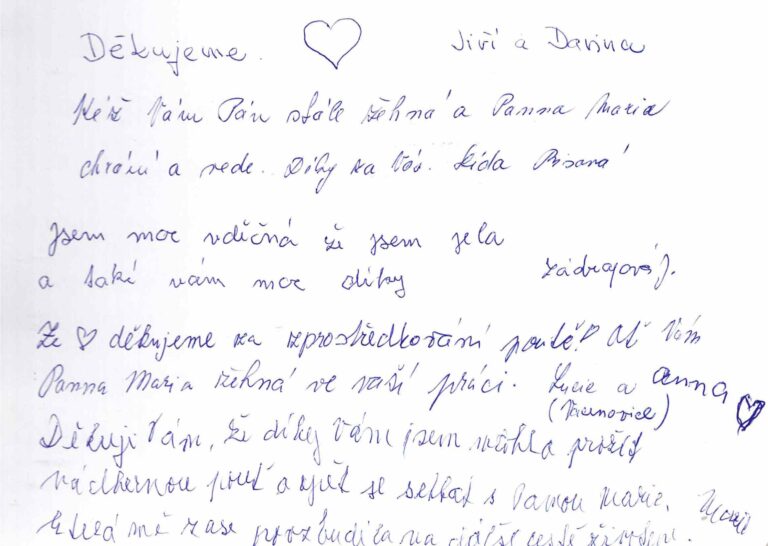 Děkujeme. Jiří a Darina
Kéž Vám Pán stále žehná a Panna Maria
chrání a vede. Díky za Vás. Lída
Jsem moc vděčná že jsem jela
a také vám moc díky
Ze ♡ děkujeme za zprostředkování poutě! Ať Vám
Panna Maria žehná ve vaší práci. Lucie a Anna
Děkuji Vám, že díky Vám jsem mohla prožít
nádhernou pouť a opět se setkat s Pannou Marií,
která mě zase povzbudila na další cestě životem.